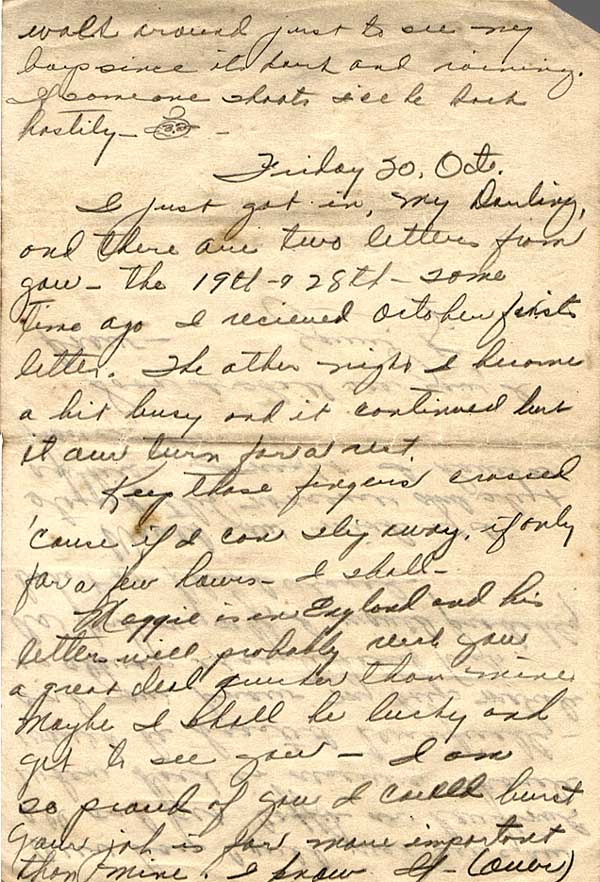 walk around just to see my
boys since its dark and raining.
I someone shoots I'll be back
hastily —
Friday 20, Oct.
I just got in, my Darling,
and there are two letters from
you — the 19th & 28th — some
time ago I recieved October firsts
letter. The other night I become
a bit busy and it continued but
it our turn for a rest.
Keep those fingers crossed
'cause if I can slip away, if only
for a few hours — I shall —
Maggie is in England and his
letters will probably reach you
a great deal quicker than mine
Maybe I shall be lucky and
get to see you — I am
so proud of you I could burst
Your job is far more important
than mine. I know. If — (over)